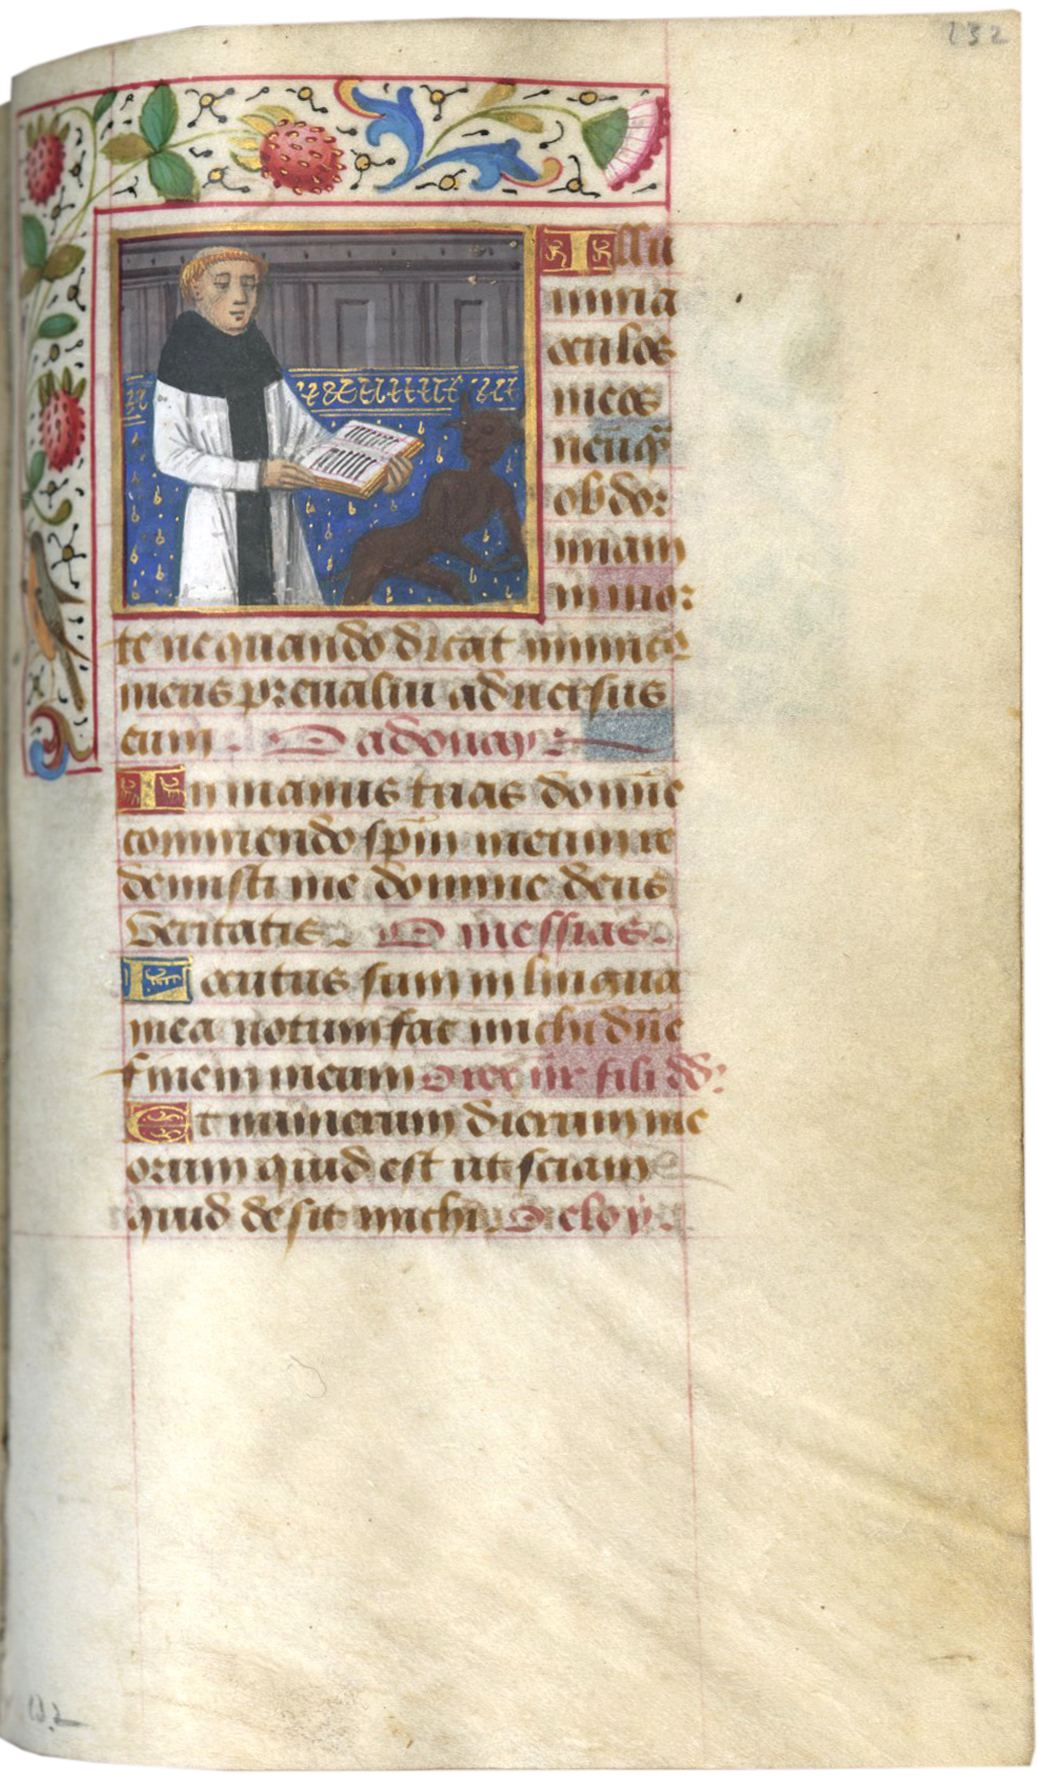 232
Illu
mina
oculos
meos
neuqz
obdor
miam
in mor
te ne quando dicat inimic9
meus preualui aduersus
eum. O adonay.
In manus tuas domine
commendo spm meum re
demisti me domine deus
veritatis. O messias.
Locutus sum in lingua
mea notum fac michi dne
finem meum O rex nr fili dd:
Et numerum dierum me
orum quid est ut sciam
quid desit michi. O eloy.
132